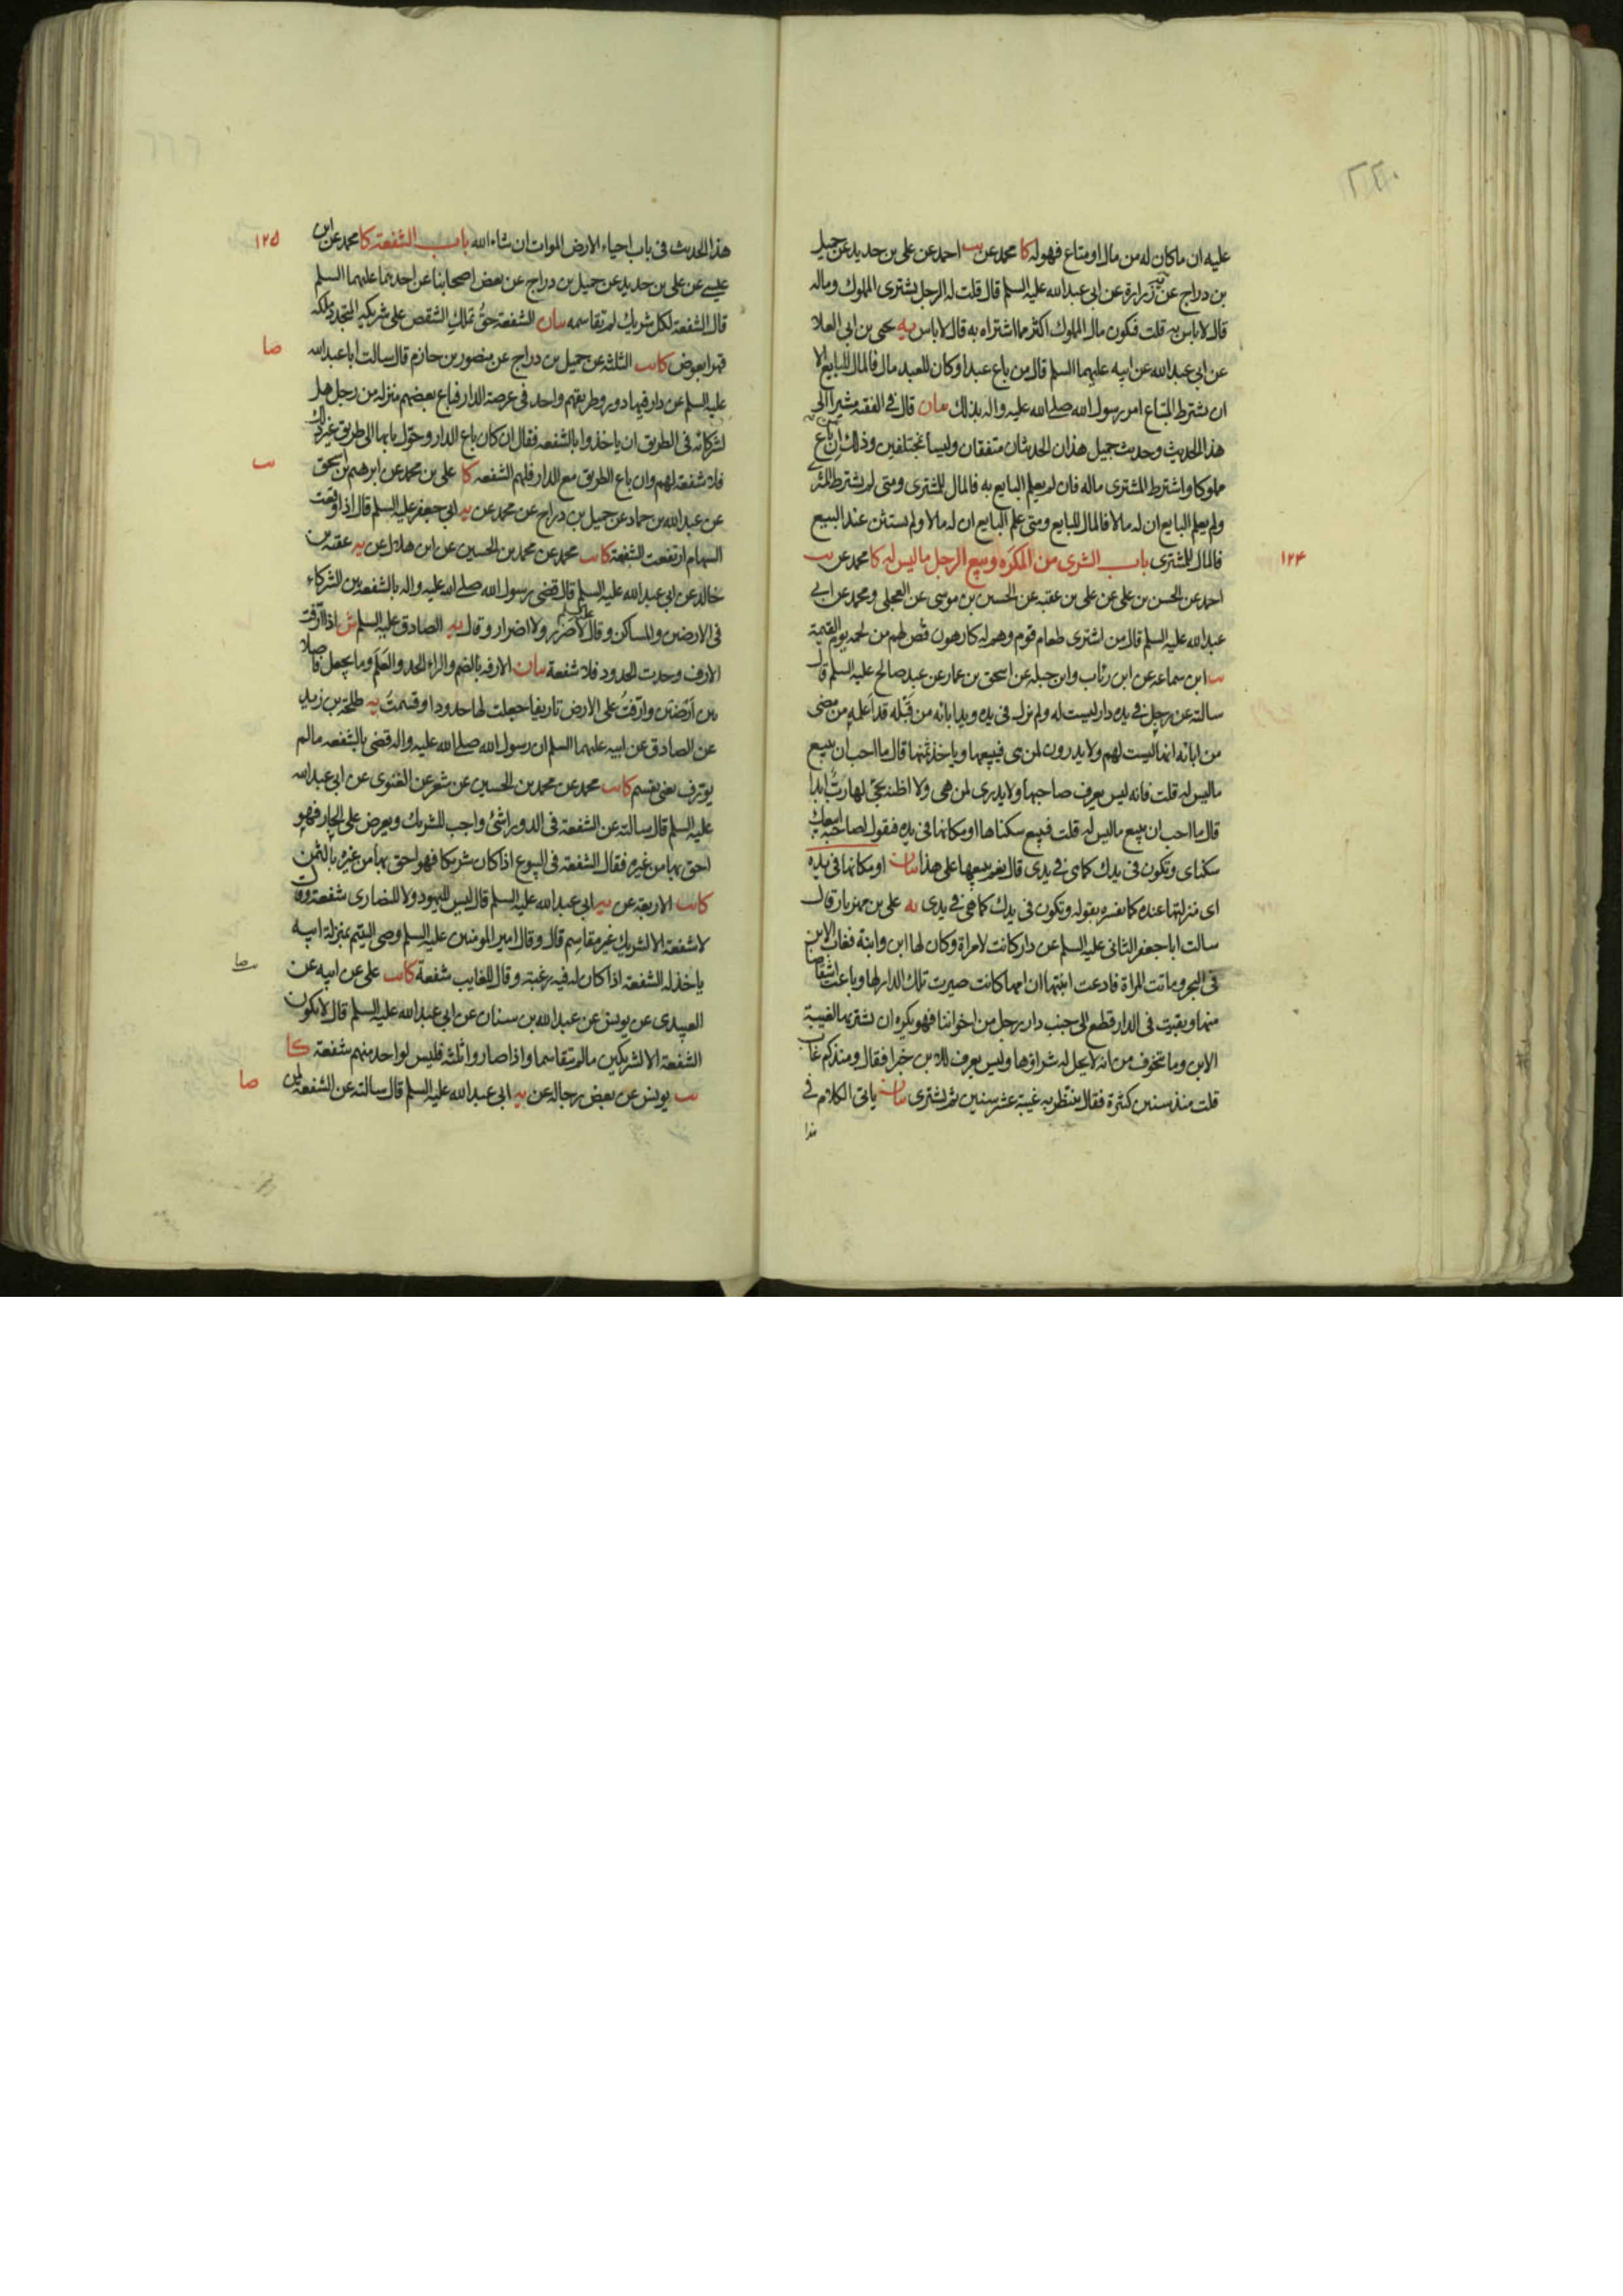 ٢٢٠
عليه ان ما كان له من مال او متاع فهو له كا محمد عن يب احمد عن على بن حديد عن جميل
بن دراج عن زرارة عن ابى عبد الله عليه السلم قال قلت له الرجل يشترى المملوك وماله
قال لا باس به قلت فيكون مال المملوك اكثر مما اشتراه به قال لا باس يه يحيى بن ابى العلا
عن ابى عبد الله عن ابيه عليهما السلم قال من باع عبدا وكان للعبد مال فالمال للبايع الا
ان يشترط المبتاع امر رسول الله صلى الله عليه واله بذلك بيان قال فى الفقيه مشيرا الى
هذا الحديث وحديث جميل هذان الحديثان متفقان وليسا بمختلفين وذلك ان من باع
مملوكا واشترط المشترى ماله فان لم يعلم البايع به فالمال للمشترى ومتى لم يشترط المشترى
ولم يعلم البايع ان له مالا فالمال للبايع ومتى علم البايع ان له مالا ولم يستثن عند البيع
فالمال للمشترى باب الشرى من المكره وبيع الرجل ما ليس له كا محمد عن يب
١٢۴
احمد عن الحسن بن على عن على بن عقبه عن الحسين بن موسى عن العجلى ومحمد عن ابى
عبد الله عليه السلم قال من اشترى طعام قوم وهم له كارهون قص لهم من لحمه يوم القيمة
يب ابن سماعه عن ابن رئاب وابن جبله عن اسحق بن عمار عن عبد صالح عليه السلم قال
سالته عن رجل فى يده دار ليست له ولم تزل فى يده ويد ابائه من قبله قد اعلمه من مضى
من ابائه انها ليست لهم ولا يدرون لمن هى فيبيعها وياخذ ثمنها قال ما احب ان يبيع
ما ليس له قلت فانه ليس يعرف صاحبها ولا يدرى لمن هى ولا اظنه يجئ لها رب ابدا
قال ما احب ان يبيع ما ليس له قلت فيبيع سكناها او مكانها فى يده فيقول لصاحبه ابيعك
سكناى وتكون فى يدك كما هى فى يدى قال نعم يبيعها على هذا بيان او مكانها فى يده
اى منزلتها عنده كما نفسره بقوله وتكون فى يدك كما هى فى يدى يه على بن مهزيار قال
سالت ابا جعفر الثانى عليه السلم عن دار كانت لامراة وكان لها ابن وابنة فغاب الابن
فى البحر وماتت المراة فادعت ابنتها ان امها كانت صيرت تلك الدار لها وباعت اشقاصا
منها وبقيت فى الدار قطعة الى جنب دار رجل من اخواننا فهو يكره ان يشتريها لغيبة
الابن وما يتخوف من انه لا يحل له شراؤها وليس يعرف للابن خبرا فقال ومنذ كم غاب
قلت منذ سنين كثيرة فقال ينتظر به غيبة عشر سنين ثم يشترى بيان ياتى الكلام فى
هذا
هذا الحديث فى باب احياء الارض الموات ان شاء الله باب الشفعة كا محمد عن ابن
١٢۵
عيسى عن على بن حديد عن جميل بن دراج عن بعض اصحابنا عن احدهما عليهما السلم
قال الشفعة لكل شريك لم تقاسمه بيان الشفعة حق تملك الشقص على شريكه المتجدد ملكه
قهرا بعوض كا يب الثلثه عن جميل بن دراج عن منصور بن حازم قال سالت ابا عبد الله
صا
عليه السلم عن دار فيها دور وطريقهم واحد فى عرصة الدار فباع بعضهم منزله من رجل هل
لشركائه فى الطريق ان ياخذوا بالشفعه فقال ان كان باع الدار وحول بابها الى طريق غير ذلك
فلا شفعة لهم وان باع الطريق مع الدار فلهم الشفعه كا على بن محمد عن ابرهيم بن اسحق
يب
عن عبد الله بن حماد عن جميل بن دراج عن محمد عن يه ابى جعفر عليه السلم قال اذا وقعت
السهام ارتفعت الشفعة كا يب محمد عن محمد بن الحسين عن ابن هلال عن يه عقبه بن
خالد عن ابى عبد الله عليه السلم قال قضى رسول الله صلى الله عليه واله بالشفعه بين الشركاء
فى الارضين والمساكن وقال عليه السلم لا ضرر ولا اضرار وقال يه الصادق عليه السلم ش اذا ارفت
الارف وحدت الحدود فلا شفعة بيان الارفه بالضم والراء الحد والعلم وما يجعل فاصلا
بين ارضين وارفت على الارض تاريفا جعلت لها حدودا وقسمت يه طلحة بن زيد
عن الصادق عن ابيه عليهما السلم ان رسول الله صلى الله عليه واله قضى بالشفعه ما لم
يورف يعنى يقسم كا يب محمد عن محمد بن الحسين عن شعر عن الغنوى عن ابى عبد الله
عليه السلم قال سالته عن الشفعة فى الدور اشئ واجب للشريك ويعرض على الجار فهو
احق بها من غيره فقال الشفعة فى البيوع اذا كان شريكا فهو احق بها من غيره بالثمن
كا يب الاربعة عن يه ابى عبد الله عليه السلم قال ليس لليهود ولا للنصارى شفعة وقال
لا شفعة الا لشريك غير مقاسم قال وقال امير المومنين عليه السلم وصى اليتيم بمنزلة ابيه
ياخذ له الشفعة اذا كان له فيه رغبة وقال للغايب شفعة كا يب على عن ابيه عن
صا
العبيدى عن يونس عن عبد الله بن سنان عن ابى عبد الله عليه السلم قال لا تكون
الشفعة الا لشريكين ما لم يتقاسما واذا صاروا ثلثه فليس لواحد منهم شفعة كا
يب يونس عن بعض رجاله عن يه ابى عبد الله عليه السلم قال سالته عن الشفعة لمن
صا